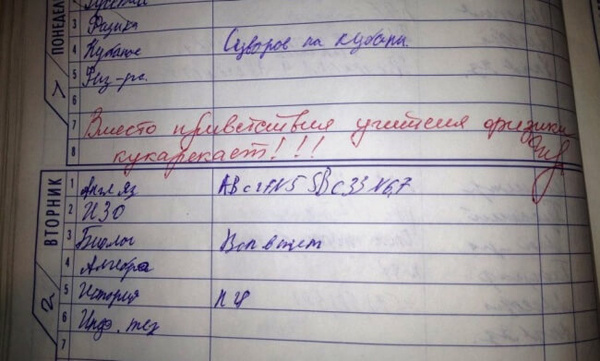 ПОНЕДЕЛ
Русский
3 Физика
4 Кубанов Суворов на кубани.
5 Физ-ра.
6
7 Вместо приветствия учителя физики
8 кукарекает!!!
ВТОРНИК
1 Англ.яз AB c 27 N5 SB c 33 N6,7
2 ИЗО
3 Биолог
4 Алгебра
5 История
6 Инф. тех
7
2